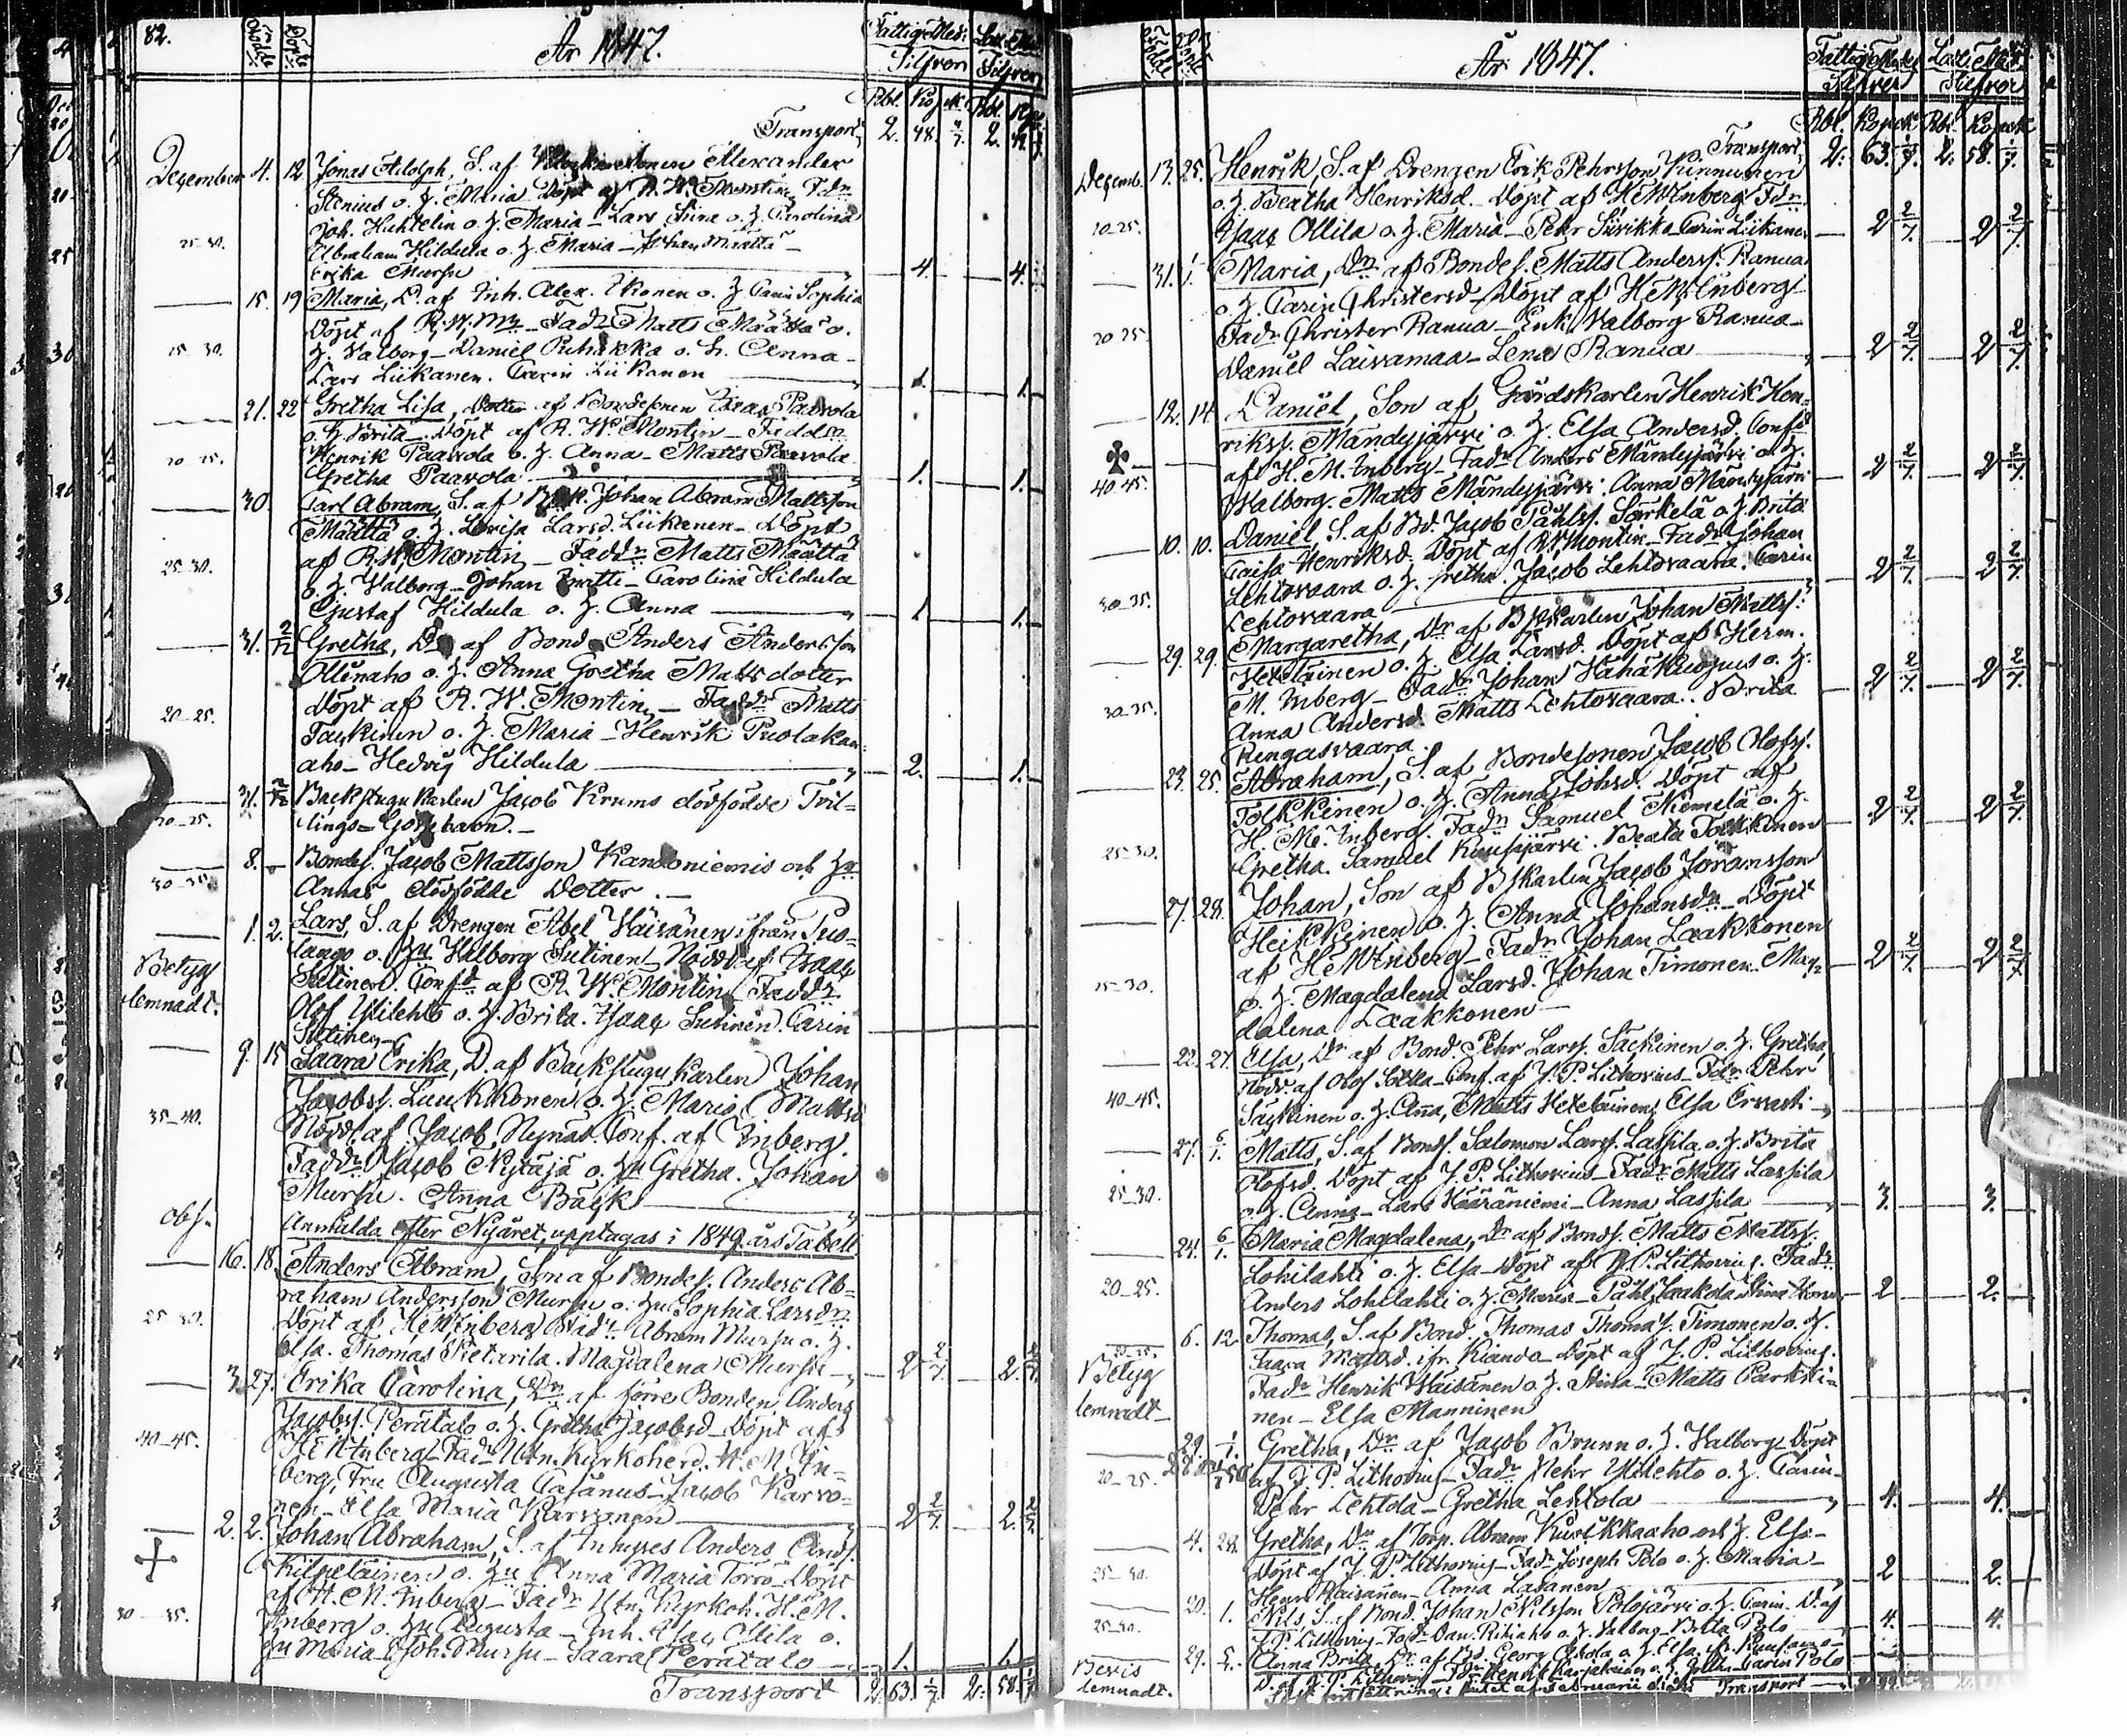 82.
År 1847.
Födde Döpte
Fattig Med:
Silfver
Rbl. Kop
Transport 2. 48. 2.
December 4. 12 Jonas Adolph, S. af Alexander
Stenius o. h. Maria Döpt af R. W. Montin, Fadr
Joh. Huhtelin o. h. Maria - Lars o. h. Carolina
25-30. Abraham Hildula o. h. Maria - Johan Määttä -
Erika Mursu 4. 4.
15. 19 Maria, D. af Inh. Alex. Ikonen o. h. Carin Sophia
Döpt af R. W. Mn - Fadr Matts Määttä o.
25-30. h. Valborg - Daniel o. h. Anna -
Lars Liikanen. Carin Liikanen 1. 1.
21. 22 Gretha Lisa, Dotter af Bondesonen Isac Paavola
o. h. Brita - Döpt af R. W. Montin - Faddr
20-25. Henrik Paavola o. h. Anna - Matts Paavola
Gretha Paavola 1. 1.
30. Carl Abram, S. af Johan Abram Mattsson
Määttä o. h. Lovisa Larsd. Liikanen - Döpt
25-30. af R. W. Montin - Faddr Matts Määttä
o. h. Valborg - Johan - Carolina Hildula
Gustaf Hildula o. h. Anna 1. 1.
31. Gretha, D. af Bond. Anders Andersson
Ollinaho o. h. Anna Gretha Mattsdotter
Döpt af R. W. Montin - Faddr Matts
20-25. Tackinen o. h. Maria - Henrik Puolakan-
aho - Hedvig Hildula 2. 1.
31. Backstugukarlen Jacob Krums dödfödde Tvil-
lings-Gossebarn. -
8. - Bondes. Jacob Mattsson Kanoniemis och hu
30-35. Annas dödfödde Dotter. -
1. 2. Lars, S. af Drengen Abel Väisänen ifrån Puo-
lango o. hu Valborg Sutinen Nöddöpt af Isaac
Betyg Sutinen. Confd af R. W. Montin Faddr
lemnadt. Olof Ylilehto o. h. Brita. Isaac Sutinen. Carin
Sutinen
9. 15 Saara Erika, D. af Backstugukarlen Johan
Jacobss. Luukkonen o. h. Maria Mattsd
35-40. Nödd. af Jacob Nynäs. Conf. af Inberg.
Faddr Jacob Nytäjä o. hu Gretha. Johan
Mursu. Anna Bäck
Obs. Anmälda efter Nyåret, upptagas i 1849 års Tabell.
16. 18. Anders Abram, Son af Bondes. Anders Ab-
raham Andersson Mursu o. hu Sophia Larsdr
25-30. Döpt af H. M. Inberg Fadr Abram Mursu o. h.
Elsa. Thomas Pietarila. Magdalena Mursu 2 2/7. 2. 2/7.
3. 27. Erika Carolina, Dr af förre Bonden Anders
Jacobss. Perätalo o. h. Gretha Jacobsd - Döpt af
40-45. H. M. Inberg - Fadr Utn. Kyrkoherd. H. M. In-
berg, Fru Augusta Cajanus - Jacob Karvo-
nen - Elsa Maria Karvonen 2 2/7. 2. 2/7.
2. 2. Johan Abraham, S. af Inhyses Anders Ands.
Kilpeläinen o. hu Anna Maria Torro - Döpt
af H. M. Inberg - Fadr Utn. Kyrkoh. H. M.
30-35. Inberg o. hu Augusta - Inh. Isac Ollila o.
hu Maria - Joh. Mursu - Saara Perätalo 1. 1.
Transport 2. 63. 1/7. 2. 58. 1/7
År 1847.
Fattig Med. Laz. Med.
Silfver Silfver
Rbl. Kopek Rbl. Kopek
Transport, 2. 63. 1/7. 2. 58. 1/7.
Decemb. 13. 25. Henrik, S. af Drengen Erik Pehrsson Kinnunen
o. h. Beatha Henriksd - Döpt af H. M. Inberg Fdr
20-25. Isaac Ollila o. h. Maria - Pehr Siirikka Carin Liikanen 2 2/7. 2 2/7.
31. 1. Maria, Dr af Bondes. Matts Anderss. Ranua
o. h. Carin Christersd - Döpt af H. M. Inberg
20-25. Fadr Christer Ranua - Enk. Valborg Ranua -
Daniel Laivamaa - Lena Ranua 2 2/7. 2 2/7.
12. 14. Daniel, Son af Gårdskarlen Henrik Hen-
rikss. Mändyjärvi o. h. Elsa Andersd. Confd
af H. M. Inberg - Fadr Anders Mändyjärvi o. h.
40-45. Valborg. Matts Mändyjärvi. Anna Mändyjärvi 2 2/7. 2 2/7.
10. 10. Daniel, S. af Bd. Jacob Påhlss. Särkelä o. h. Brita
Caisa Henriksd. Döpt af R. W. Montin - Fadr Johan
30-35. Lehtovaara o. h. Gretha. Jacob Lehtovaara. Carin
Lehtovaara 2 2/7. 2 2/7.
29. 29. Margaretha, Dr af Bkarlen Johan Mattss.
Heteläinen o. h. Elsa Larsd. Döpt af Herm.
30-35. M. Inberg - Fadr Johan Vähäkuopus o. h.
Anna Andersd. Matts Lehtovaara. Brita
Rengasvaara. 2 2/7. 2 2/7.
23. 25. Abraham, S. af Bondesonen Jacob Olofss.
Tolkkinen o. h. Anna Johsd. Döpt af
25-30. H. M. Inberg. Fadr Samuel Niemelä o. h.
Gretha. Samuel Kuusijärvi. Beata Tolkkinen 2 2/7. 2 2/7.
27. 28. Johan, Son af Bkarlen Jacob Göransson
Heikkinen o. h. Anna Johansdr - Döpt
af H. M. Inberg - Fadr Johan Laakkonen
25-30. o. h. Magdalena Larsd. Johan Timonen. Mag-
dalena Laakkonen - 2 2/7. 2 2/7
22. 27. Elsa, Dr af Bond. Pehr Larss. Säckinen o. h. Gretha,
Nödd. af Olof Sotka - Conf. af J. P. Lithovius - Fadr Pehr
40-45. Säckinen o. h. Anna, Matts Heteläinen, Elsa Ervasti -
27. 6/1. Matts, S. af Bonds. Salomon Larss. Lassila o. h. Brita
Olofsd. Döpt af J. P. Lithovius - Fadr Matts Lassila
25-30. o. h. Anna - Lars Vääräniemi - Anna Lassila 3. 3.
24. 6/1. Maria Magdalena, Dr af Bonds. Matts Mattss.
Lohilahti o. h. Elsa - Döpt af J. P. Lithovius. Fadr
20-25. Anders Lohilahti o. h. Maria - Påhl Jaakola 2 2.
6. 12 Thomas, S. af Bond. Thomas Thomass. Timonen o. h.
Saara Mattsd. ifr. Kianda - Döpt af J. P. Lithovius.
Betyg Fadr Henrik Väisänen o. h. Stina - Matts Parkki-
lemnadt - nen - Elsa Manninen
29. 1/1. Gretha, Dr af Jacob Brunn o. h. Valborg Döpt
20-25. af J. P. Lithovius - Fadr Pehr Ylilehto o. h. Carin -
Pehr Lehtola - Gretha Lehtola 4. 4.
4. 28. Gretha, Dr af Torp. Abram Kurikkaaho och h. Elsa -
25-30. Döpt af J. P. Lithovius - Fadr Joseph Polo o. h. Maria -
Henr. Räisänen - Anna Lasanen 2 2.
20. 1. Nils, S. af Bond. Johan Nilsson Polojärvi o. h. Carin. D. af
25-30. J. P. Lithovius - Fadr Dan. Riihiaho o. h. Valborg - Britta Polo 4. 4.
29. Anna Brita, Dr af Georg o. h. Elsa, ifr. Kuusamo -
Bevis D. af J. P. Lithovius - Fdr Henrik Karjalainen o. h. Gretha - Carin Polo
lemnadt. Transport